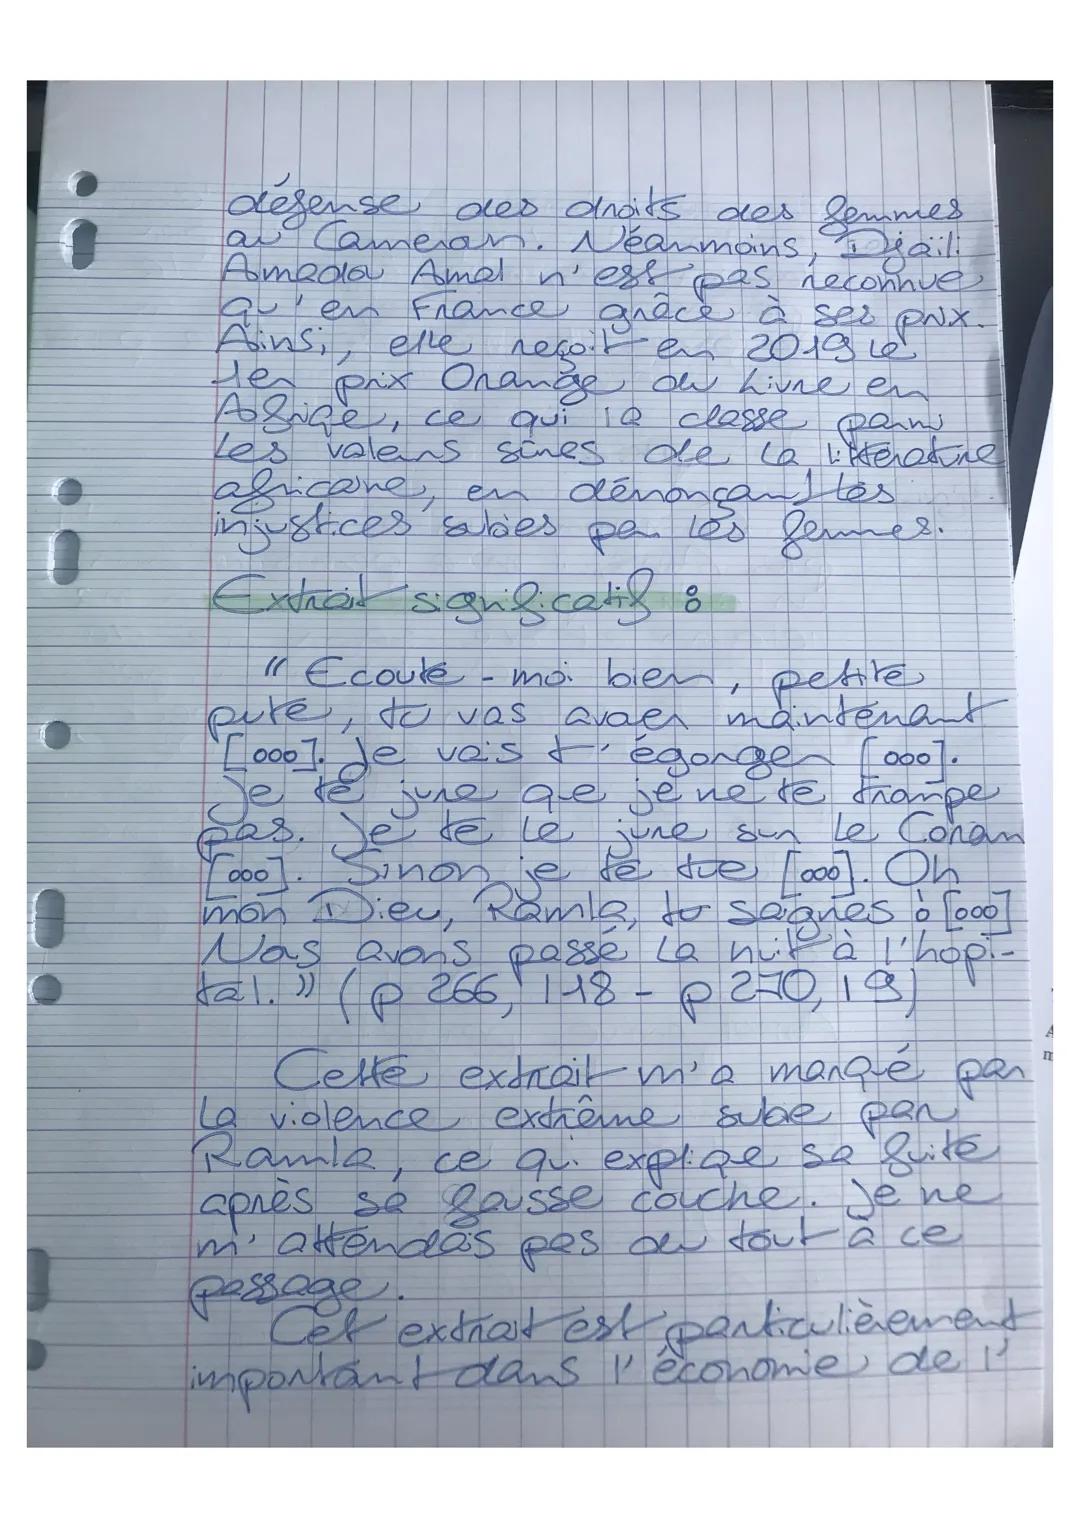 défense des droits des femmes
au Cameroun. Néanmoins, Djaïli
Amadou Amal n'est pas reconnue
qu'en France grâce à ses prix.
Ainsi, elle reçoit en 2019 le
1er prix Orange du Livre en
Afrique, ce qui la classe parmi
les valeurs sûres de la littérature
africaine, en dénonçant les
injustices subies par les femmes.
Extrait significatif :
"Ecoute-moi bien, petite
pute, tu vas avouer maintenant
[...]. Je vais t'égorger [...].
Je te jure que je ne te trompe
pas. Je te le jure sur le Coran
[...]. Sinon je te tue [...]. Oh
mon Dieu, Ramla, tu saignes ! [...]
Nous avons passé la nuit à l'hôpi-
tal." (p 266, l18 - p 270, l9)
Cette extrait m'a marqué par
la violence extrême subie par
Ramla, ce qui explique sa fuite
après sa fausse couche. Je ne
m'attendais pas du tout à ce
passage.
Cet extrait est particulièrement
important dans l'économie de l'